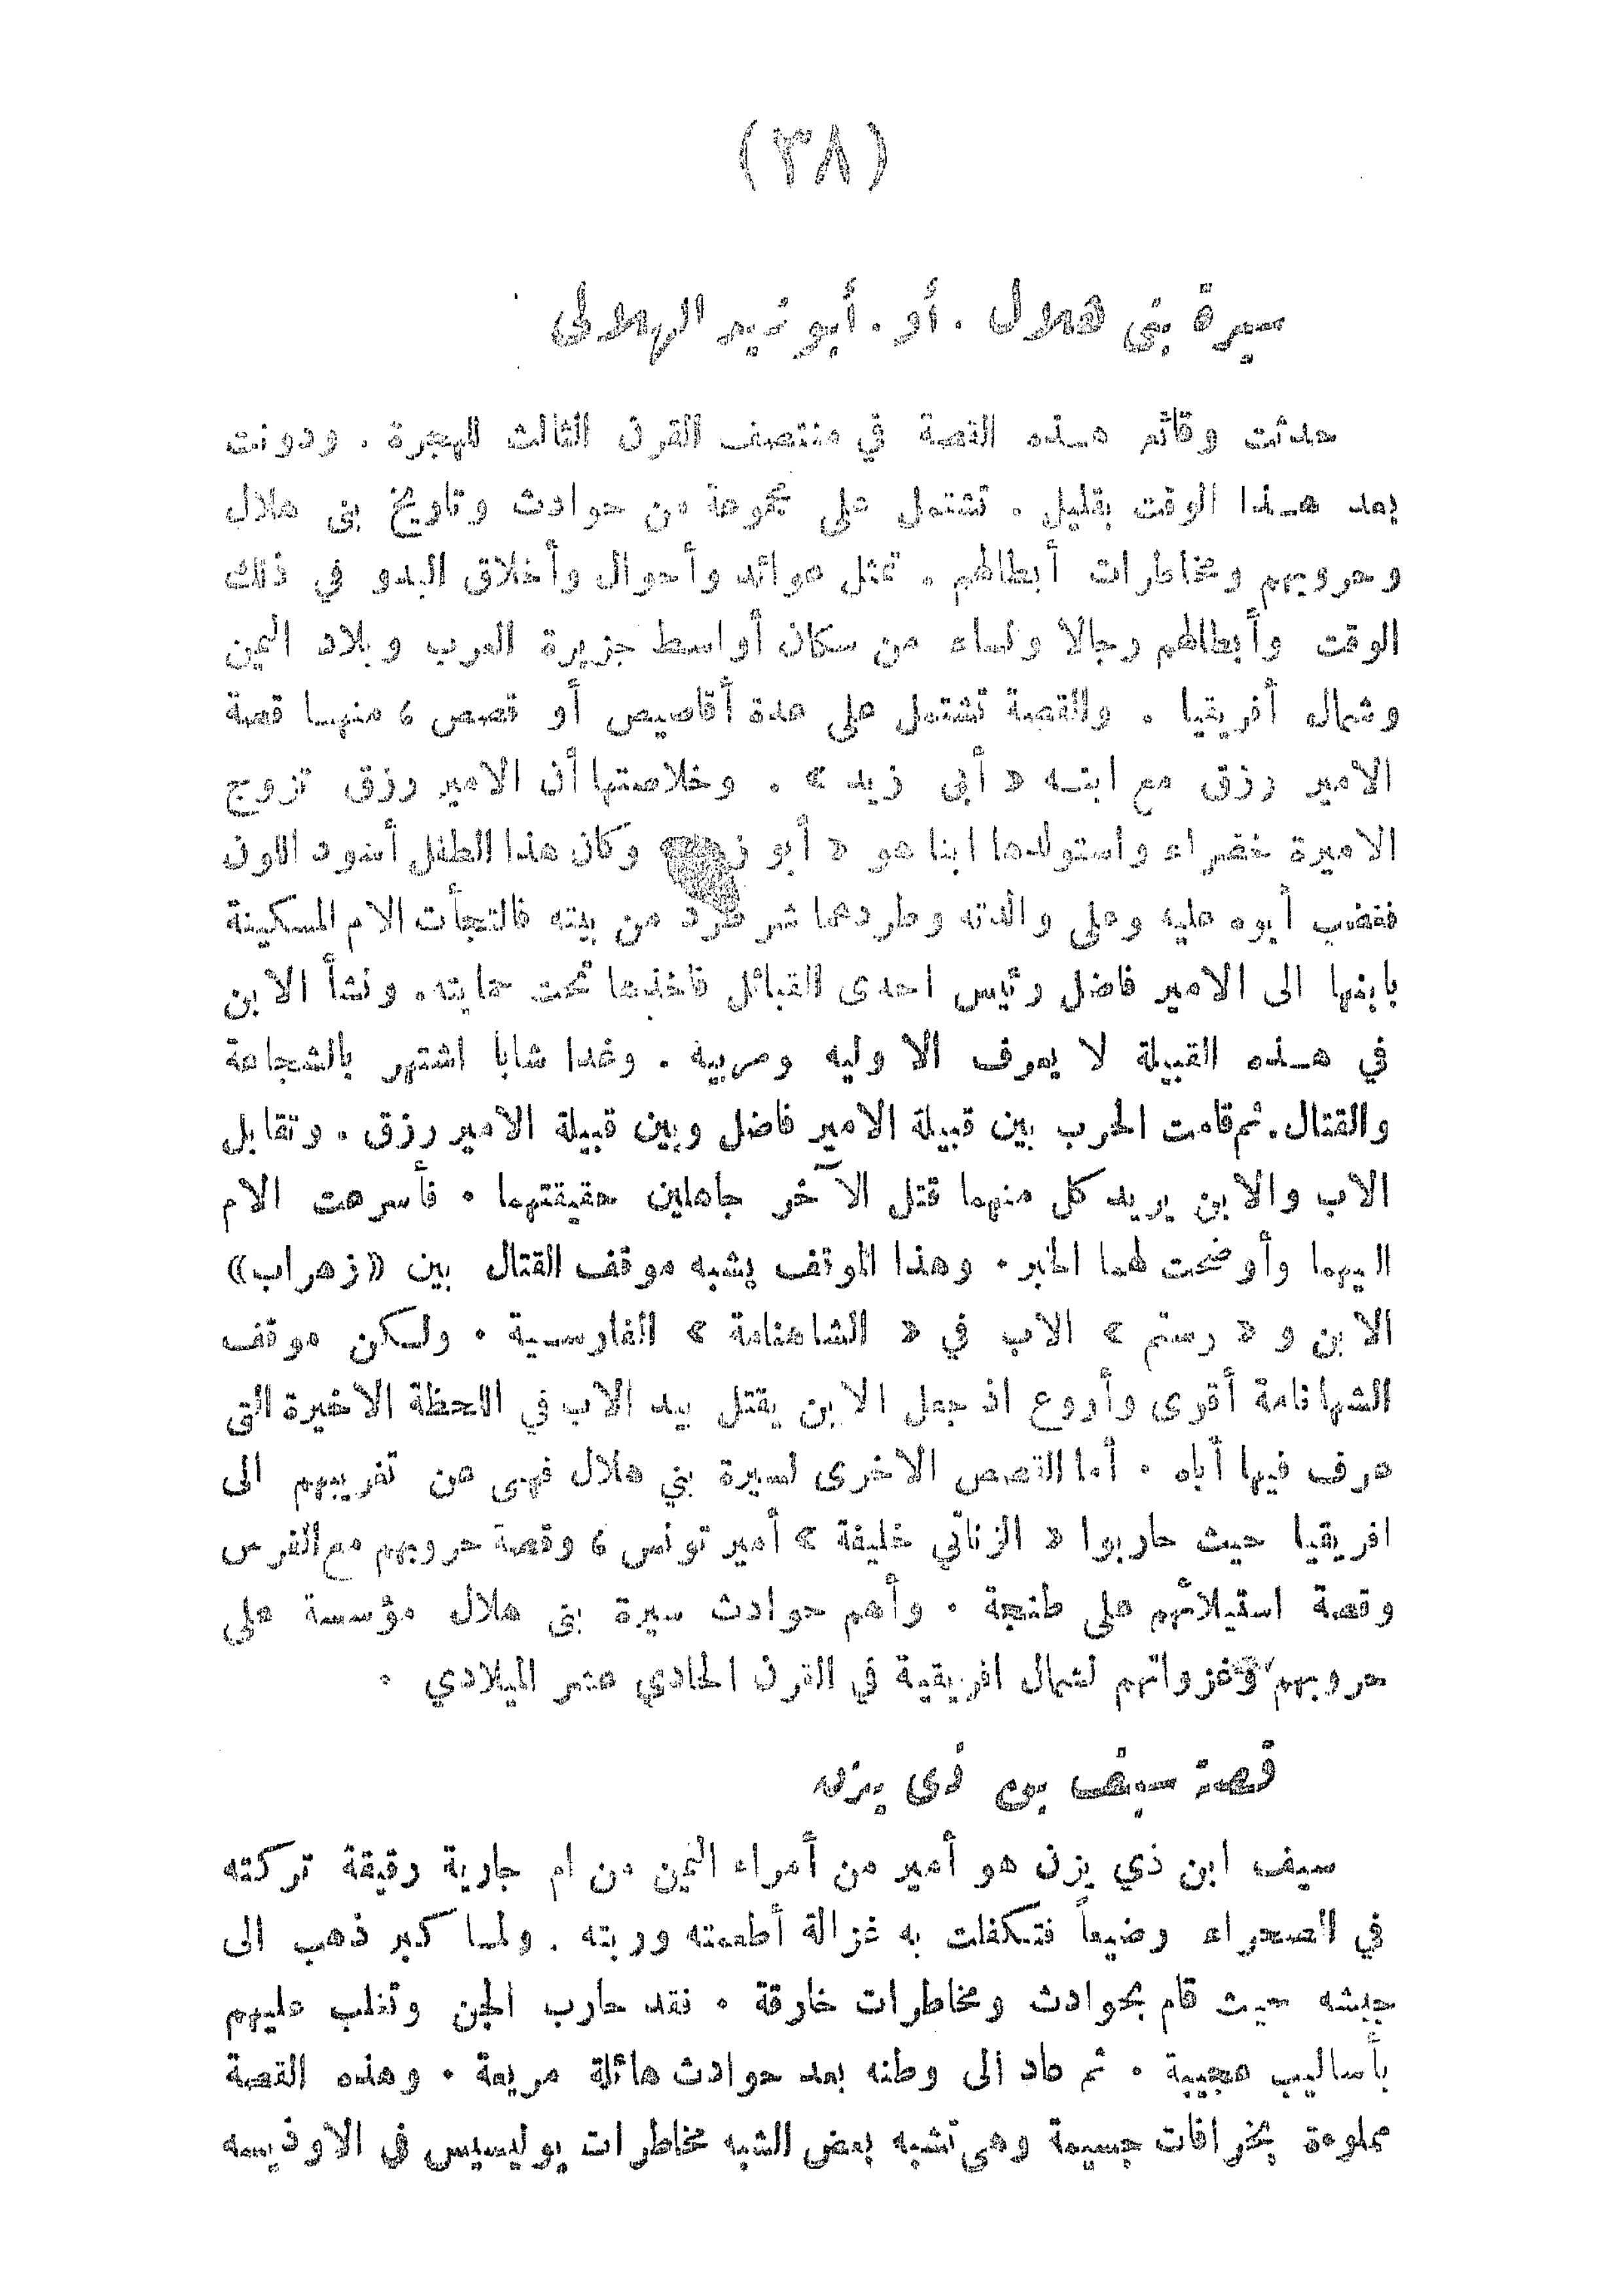 (٣٨)
سيرة بنى هلال . أو . أبو زيد الهلالى
حدثت وقائع هذه القصة في منتصف القرن الثالث للهجرة . ودونت
بعد هذا الوقت بقليل . تشتمل على مجموعة من حوادث وتاريخ بنى هلال
وحروبهم ومخاطرات أبطالهم . تمثل عوائد وأحوال وأخلاق البدو في ذلك
الوقت وأبطالهم رجالا ونساء من سكان أواسط جزيرة العرب وبلاد اليمن
وشمال أفريقيا . والقصة تشتمل على عدة أقاصيص أو قصص ، منها قصة
الامير رزق مع ابنه « أبى زيد » . وخلاصتها أن الامير رزق تزوج
الاميرة خضراء واستولدها ابنا هو « أبو زيد » وكان هذا الطفل أسود اللون
فغضب أبوه عليه وعلى والدته وطردهما شر طرد من بيته فالتجأت الام المسكينة
بابنها الى الامير فاضل رئيس احدى القبائل فأخذهما تحت حمايته. ونشأ الابن
في هذه القبيلة لا يعرف الا وليه ومربيه . وغدا شابا اشتهر بالشجاعة
والقتال. ثم قامت الحرب بين قبيلة الامير فاضل وبين قبيلة الامير رزق . وتقابل
الاب والابن يريد كل منهما قتل الآخر جاهلين حقيقتهما . فأسرعت الام
اليهما وأوضحت لهما الخبر . وهذا الموقف يشبه موقف القتال بين «زهراب»
الابن و « رستم » الاب في « الشاهنامة » الفارسية . ولكن موقف
الشهانامة أقوى وأروع اذ جعل الابن يقتل بيد الاب في اللحظة الاخيرة التى
عرف فيها أباه . أما القصص الاخرى لسيرة بني هلال فهى عن تغريبهم الى
افريقيا حيث حاربوا « الزناتي خليفة » أمير تونس ، وقصة حروبهم مع الفرس
وقصة استيلائهم على طنجة . وأهم حوادث سيرة بنى هلال مؤسسة على
حروبهم وغزواتهم لشمال افريقية في القرن الحادي عشر الميلادي .
قصة سيف بن ذى يزن
سيف ابن ذي يزن هو أمير من أمراء اليمن من ام جارية رقيقة تركته
في الصحراء رضيعاً فتكفلت به غزالة أطعمته وربته . ولما كبر ذهب الى
جيشه حيث قام بحوادث ومخاطرات خارقة . فقد حارب الجن وتغلب عليهم
بأساليب عجيبة . ثم عاد الى وطنه بعد حوادث هائلة مريعة . وهذه القصة
مملوءة بخرافات جسيمة وهى تشبه بعض الشبه مخاطرات يوليسيس في الاوذيسه